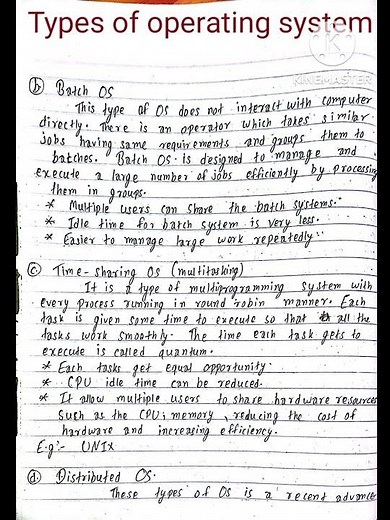 Types of operating system
KINEMASTER
(b) Batch OS
This type of OS does not interact with computer
directly. There is an operator which takes similar
jobs having same requirements and groups them to
batches. Batch OS is designed to manage and
execute a large number of jobs efficiently by processing
them in groups.
* Multiple users can share the batch systems.
* Idle time for batch system is very less.
* Easier to manage large work repeatedly.
(c) Time-sharing OS (multitasking)
It is a type of multiprogramming system with
every process running in round robin manner. Each
task is given some time to execute so that all the
tasks work smoothly. The time each task gets to
execute is called quantum.
* Each tasks get equal opportunity.
* CPU idle time can be reduced.
* It allow multiple users to share hardware resources
such as the CPU, memory, reducing the cost of
hardware and increasing efficiency.
E.g:- UNIX
(d) Distributed OS.
These types of OS is a recent advance